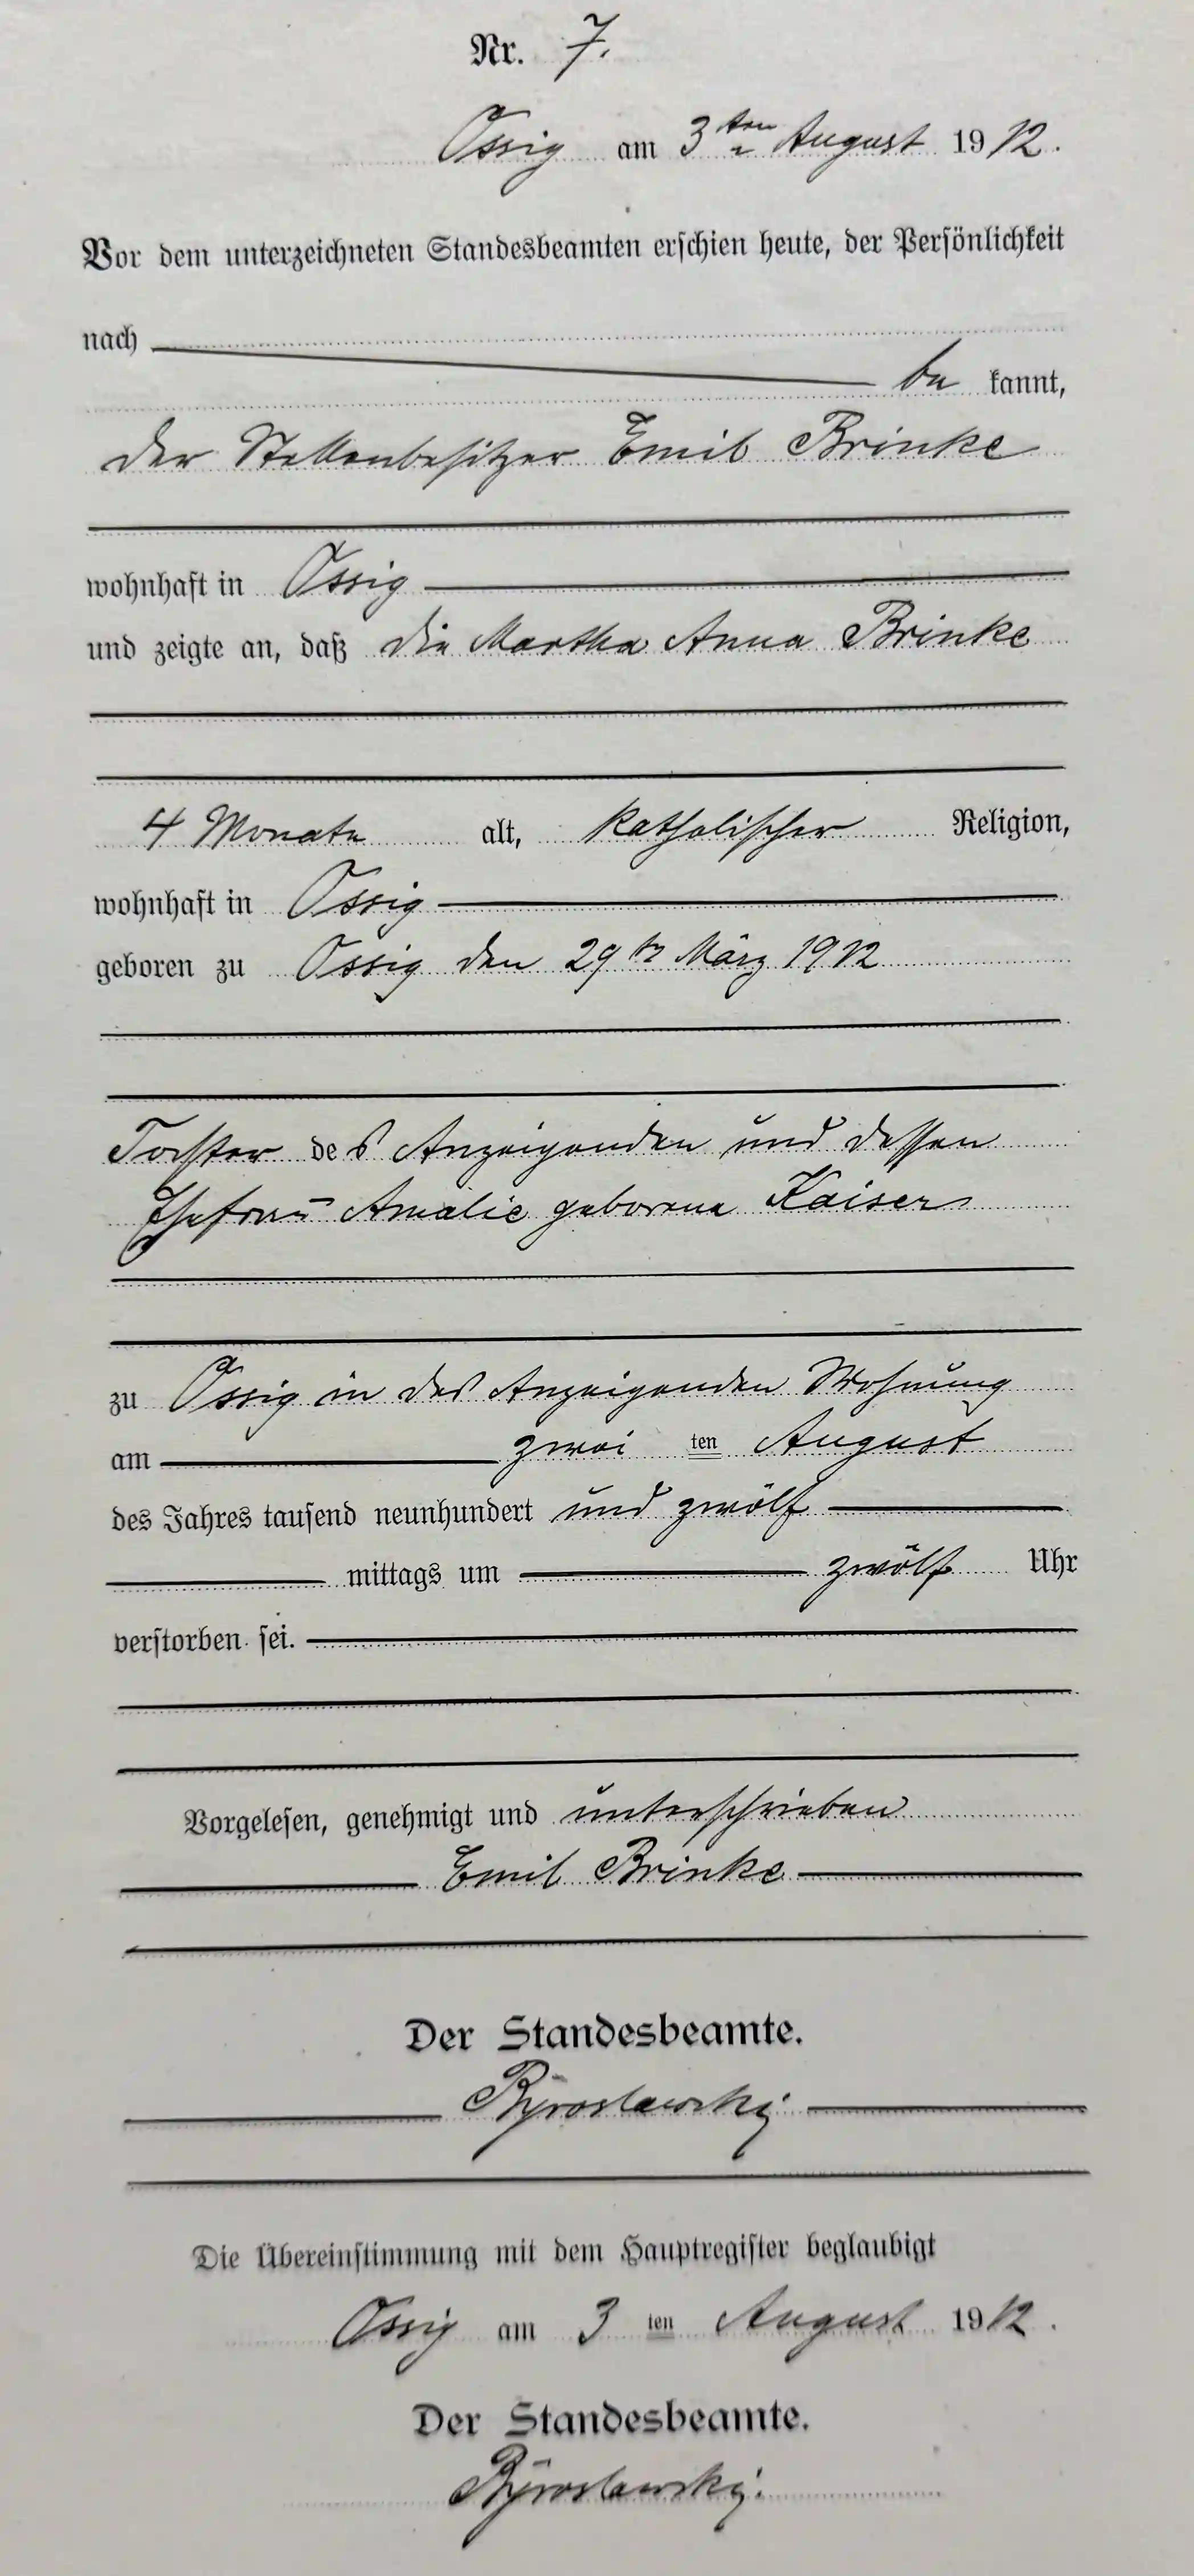 Nr. 7.
Ossig am 3ten August 1912.
Vor dem unterzeichneten Standesbeamten erschien heute, der Persönlichkeit
nach
be kannt,
der Stellenbesitzer Emil Brinke
wohnhaft in Ossig
und zeigte an, daß die Martha Anna Brinke
4 Monate alt, katholischer Religion,
wohnhaft in Ossig
geboren zu Ossig den 29ten März 1912
Tochter des Anzeigenden und dessen
Ehefrau Amalie geborene Kaiser
zu Ossig in des Anzeigenden Wohnung
am zwei ten August
des Jahres tausend neunhundert und zwölf
mittags um zwölf Uhr
verstorben sei.
Vorgelesen, genehmigt und unterschrieben
Emil Brinke
Der Standesbeamte.
Die Übereinstimmung mit dem Hauptregister beglaubigt
Ossig am 3 ten August 1912.
Der Standesbeamte.